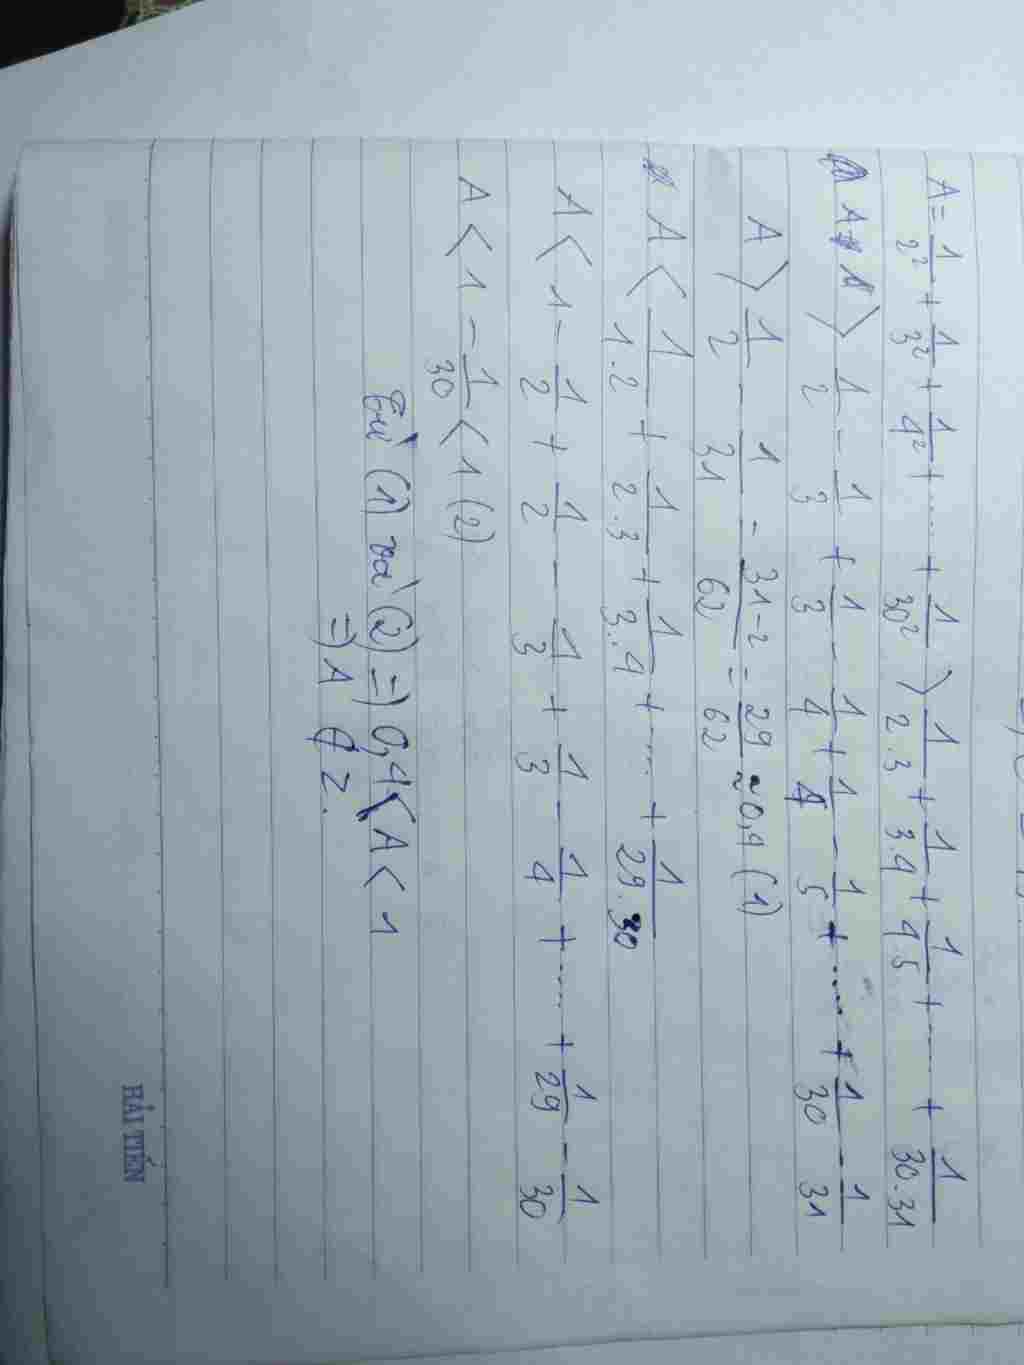 A = 1/2² + 1/3² + 1/4² + ..... + 1/30² > 1/2.3 + 1/3.4 + 1/4.5 + ..... + 1/30.31
A > 1/2 - 1/3 + 1/3 - 1/4 + 1/4 - 1/5 + ..... + 1/30 - 1/31
A > 1/2 - 1/31 = 31-2/62 = 29/62 ≈ 0,4 (1)
A < 1/1.2 + 1/2.3 + 1/3.4 + ..... + 1/29.30
A < 1 - 1/2 + 1/2 - 1/3 + 1/3 - 1/4 + ..... + 1/29 - 1/30
A < 1 - 1/30 < 1 (2)
Từ (1) và (2) => 0,4 < A < 1
=> A ∉ Z.
HẢI TIẾN